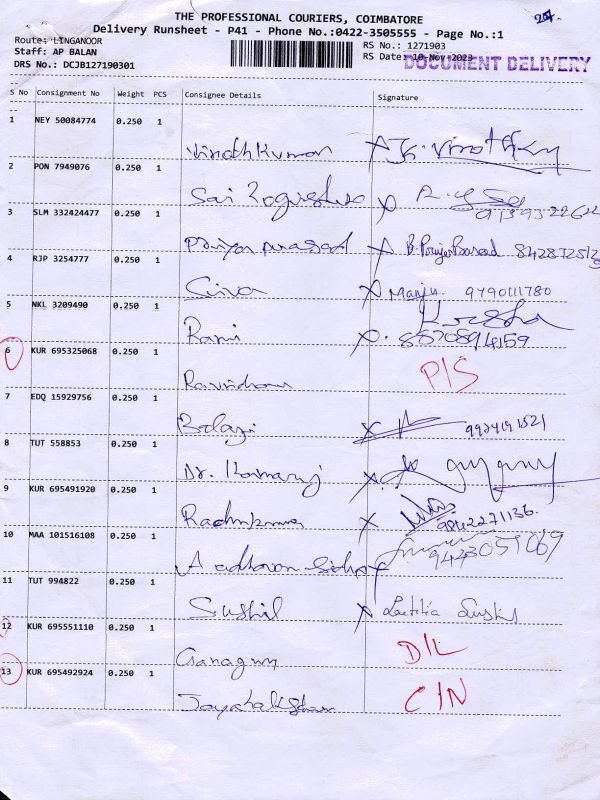 THE PROFESSIONAL COURIERS, COIMBATORE
Delivery Runsheet - P41 - Phone No.:0422-3505555 - Page No.:1
Route: LINGANOOR RS No.: 1271903
Staff: AP BALAN RS Date: 10-Nov-2023
DOCUMENT DELIVERY
DRS No.: DCJB127190301
S No Consignment No Weight PCS Consignee Details Signature
1 NEY 50084774 0.250 1
Vinoth Kumar
2 PON 7949076 0.250 1
Sai
3 SLM 332424477 0.250 1
Priya prasad
4 RJP 3254777 0.250 1
Siva Manju. 9790111780
5 NKL 3209490 0.250 1
Rami 8870894159
6 KUR 695325068 0.250 1
P/S
7 EDQ 15929756 0.250 1
Balaji
8 TUT 558853 0.250 1
Dr. Kamaraj
9 KUR 695491920 0.250 1
9842271136.
10 MAA 101516108 0.250 1
11 TUT 994822 0.250 1
Sushil Laetitia
12 KUR 695551110 0.250 1
D/L
13 KUR 695492924 0.250 1
C/N